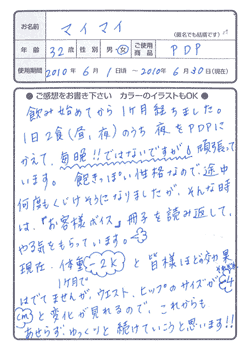 お名前
マイマイ
(匿名でも結構です)
年齢 32歳 性別 男・女 ご使用商品 PDP
使用期間 2010年 6月 1日頃 ～ 2010年 6月 30日(現在)
●ご感想をお書き下さい カラーのイラストもOK●
飲み始めてから1ヶ月経ちました。
1日2食(昼、夜)のうち夜をPDPに
かえて、毎晩!!ではないですが 頑張って
います。 飽きっぽい性格なので、途中
何度もくじけそうになりましたが、そんな時
は、『お客様ボイス』冊子を読み返して、
やる気をもらっています。
現在、体重 -2K と 皆様ほど効果
1ヶ月で
はでてませんが、ウエスト、ヒップのサイズが -4
cm と変化が見れるので、これからも
あせらず、ゆっくりと続けていこうと思います!!